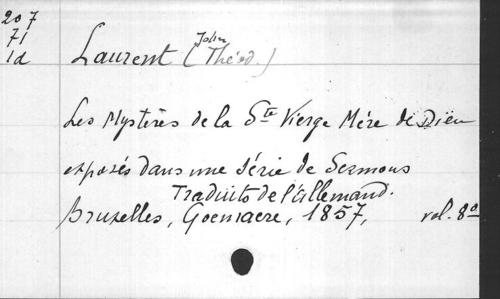 207
71
1d
Laurent (John Théod.)
Les Mystères de la Ste Vierge Mère de Dieu
exposés dans une série de Sermons
Traduits de l'Allemand.
Bruxelles, Goemaere, 1857, vol. 8o